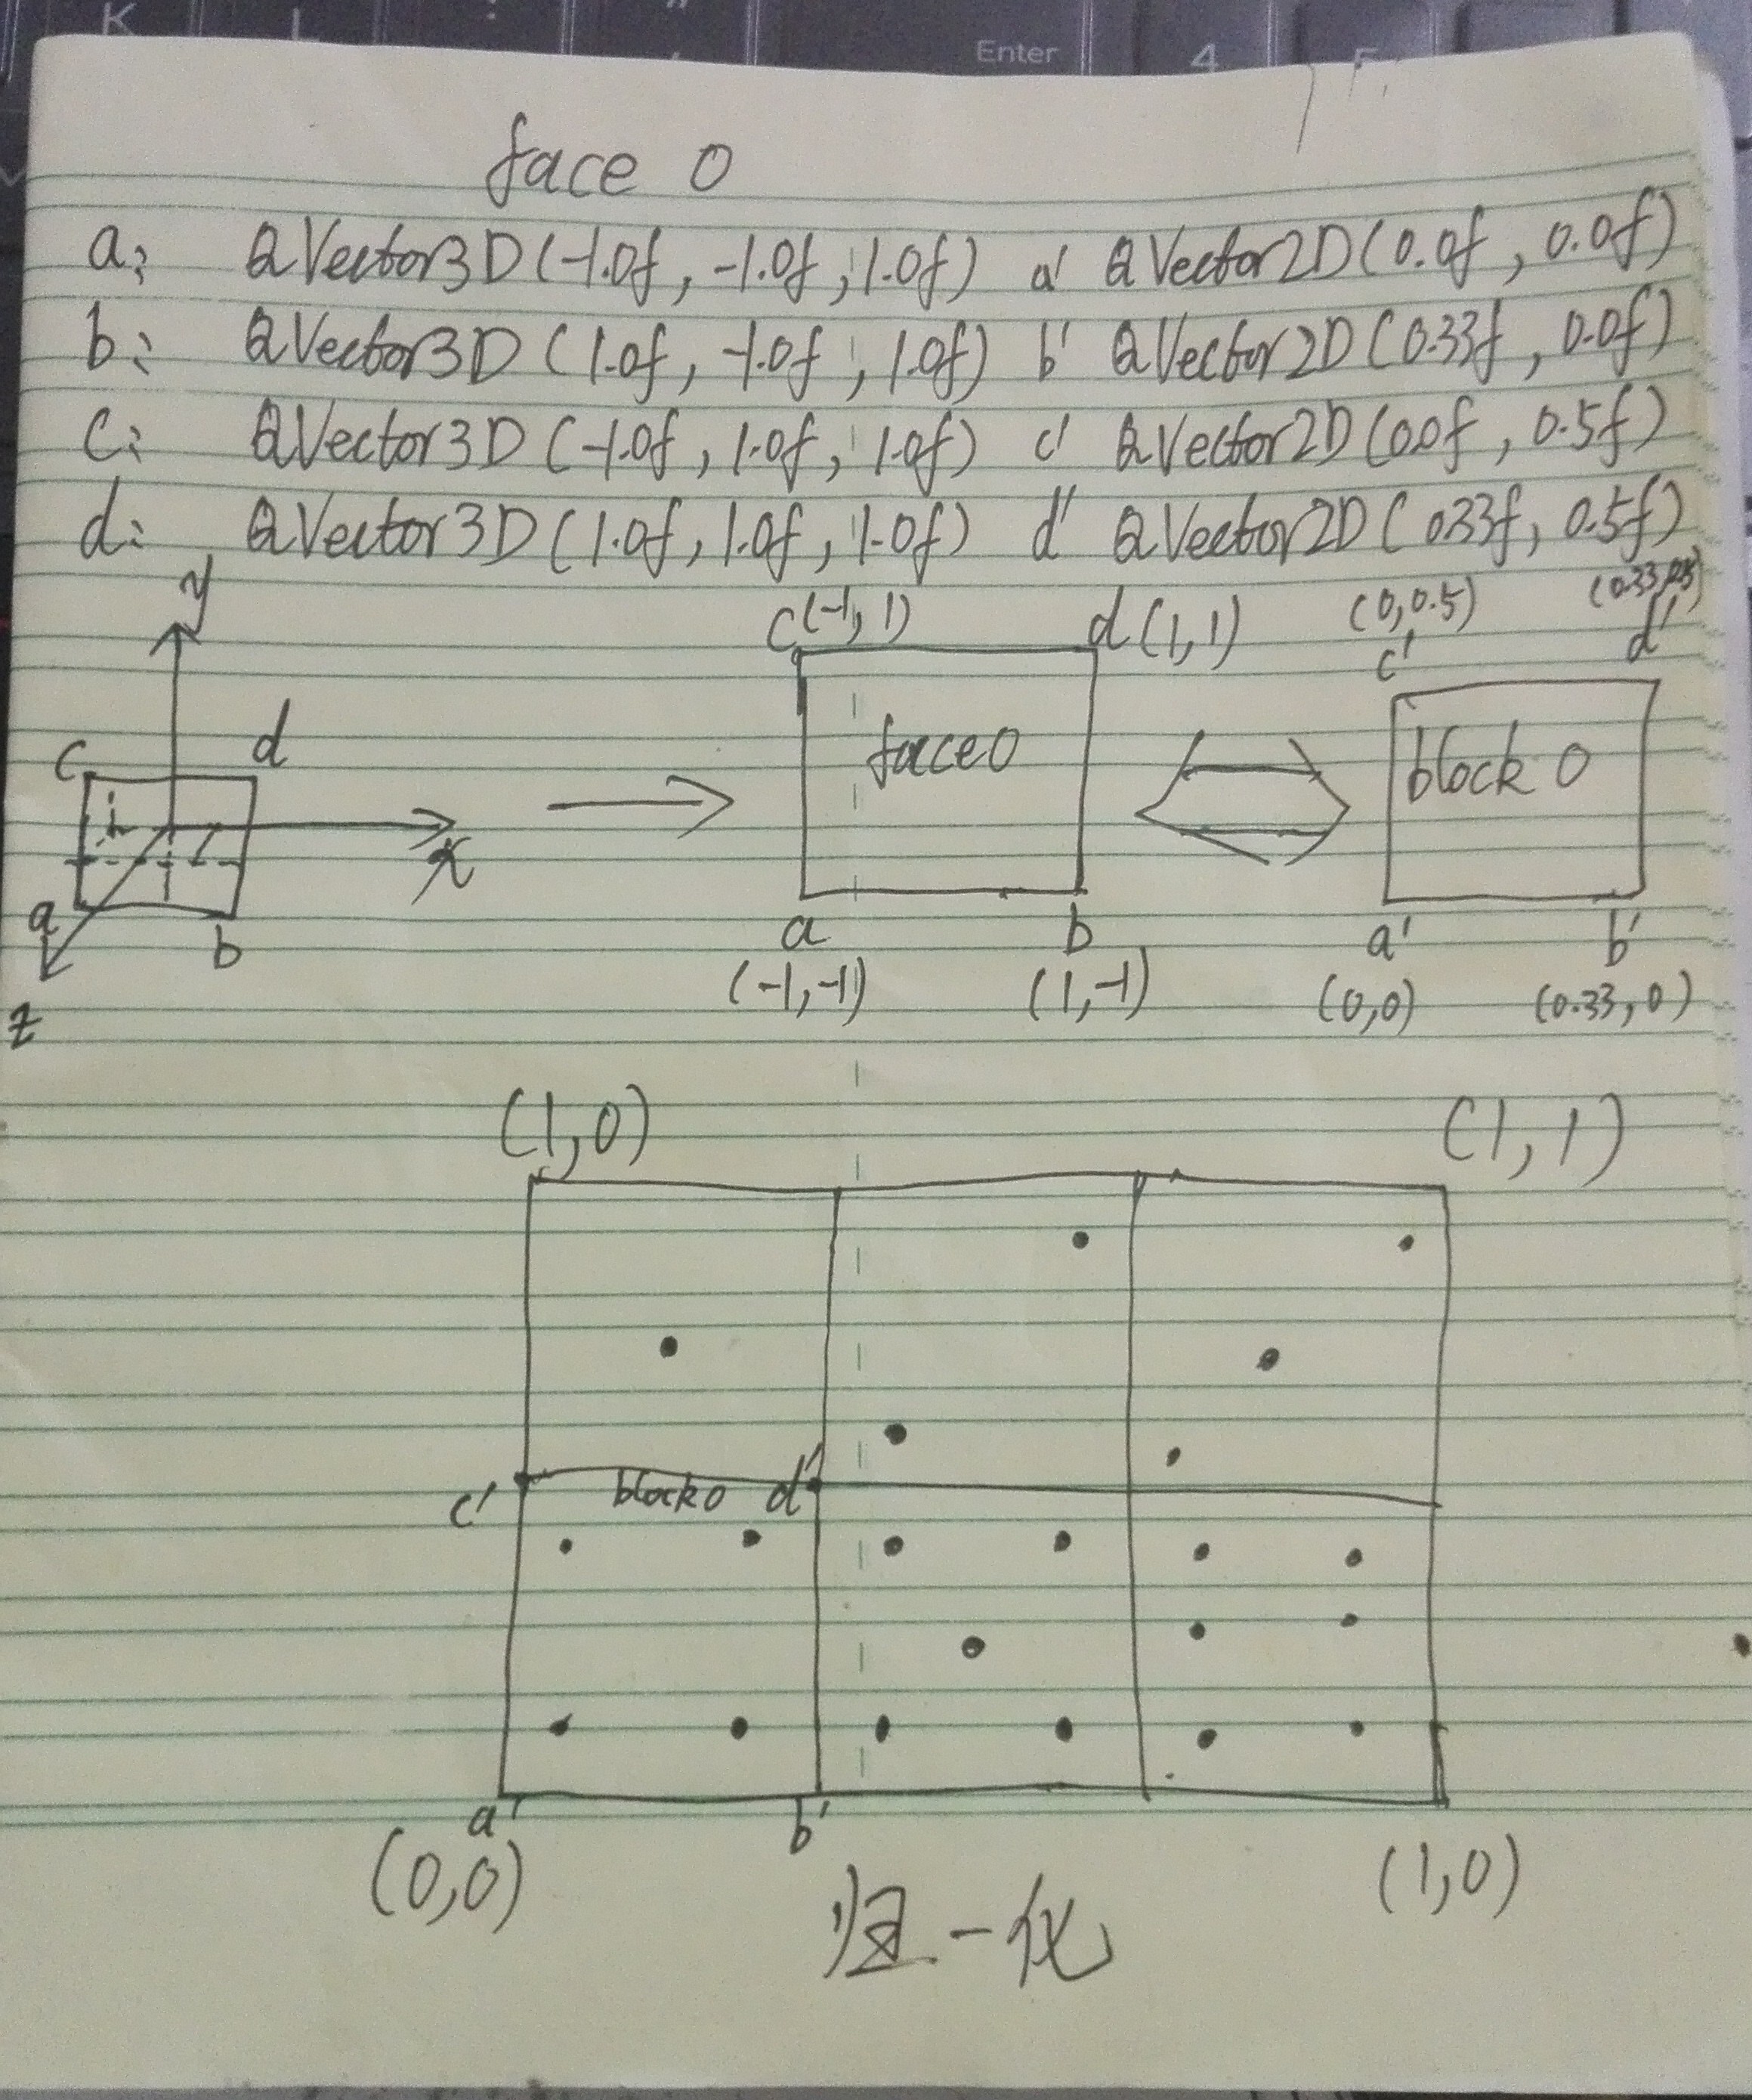 K
L
Enter
4
face 0
a: QVector3D(-1.0f, -1.0f, 1.0f) a' QVector2D(0.0f, 0.0f)
b: QVector3D(1.0f, -1.0f, 1.0f) b' QVector2D(0.33f, 0.0f)
c: QVector3D(-1.0f, 1.0f, 1.0f) c' QVector2D(0.0f, 0.5f)
d: QVector3D(1.0f, 1.0f, 1.0f) d' QVector2D(0.33f, 0.5f)
y
c (-1, 1) d (1, 1) (0, 0.5) (0.33, 0.5)
c' d'
c d
face0 block 0
x
a b
z
a b a' b'
(-1,-1) (1,-1) (0,0) (0.33, 0)
(1,0) (1,1)
c' block0 d'
a' b'
(0,0) (1,0)
归一化